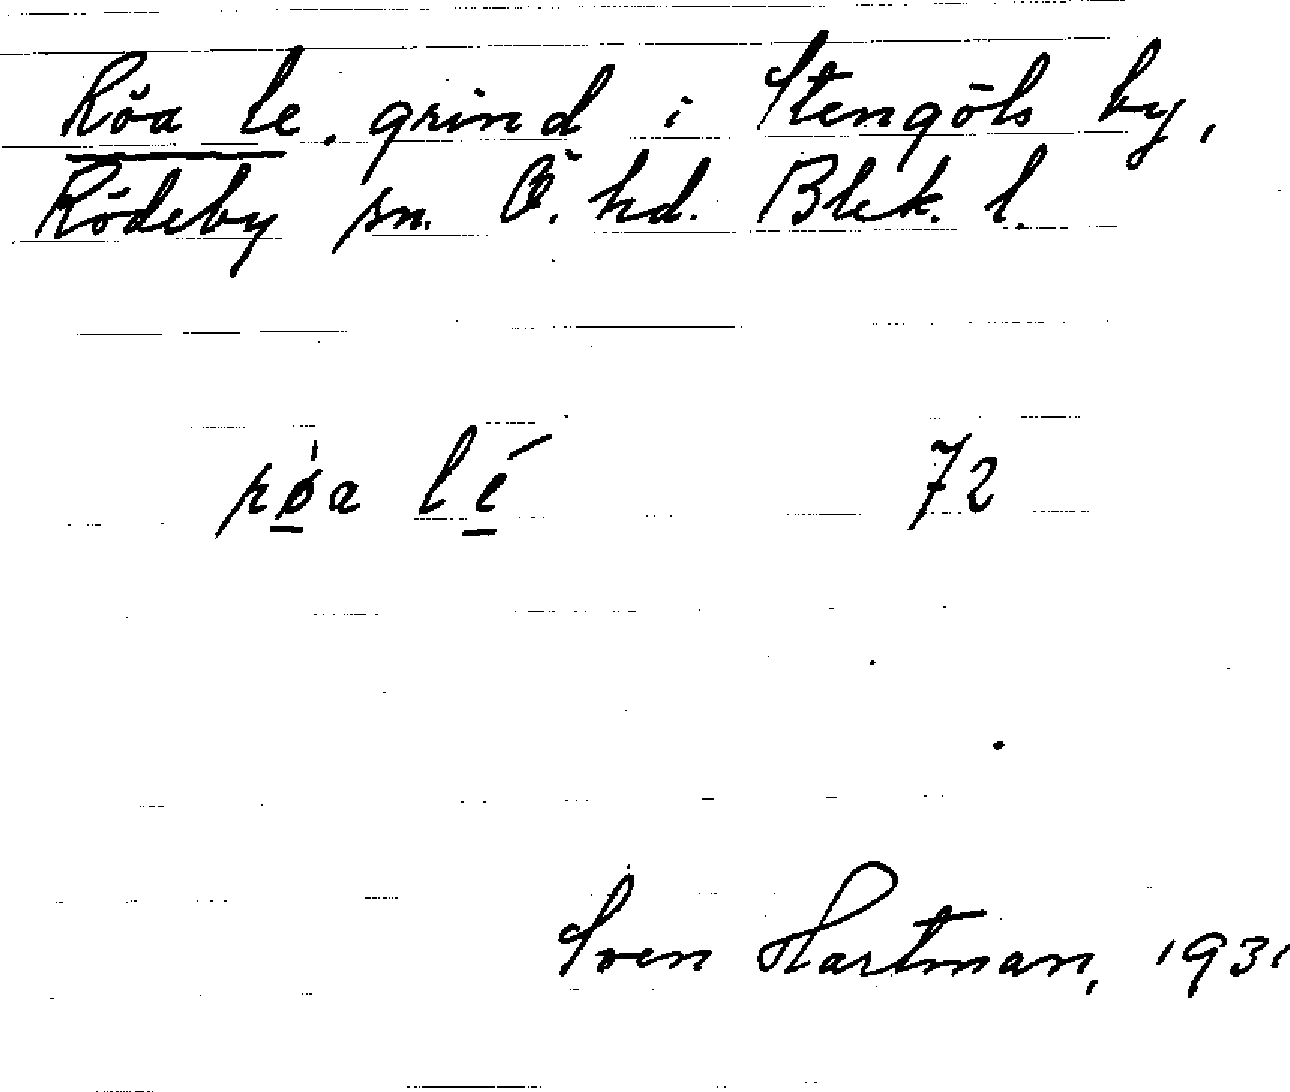 Röa le. grind i Stengöls by,
Rödeby sn. Ö. hd. Blek. l.
røa lé 72
Sven Hartman, 1931